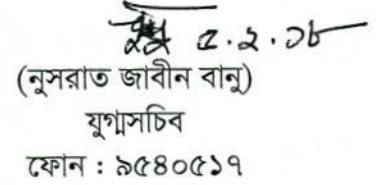 ৫.২.১৮
(নুসরাত জাবীন বানু)
যুগ্মসচিব
ফোন : ৯৫৪০৫১৭